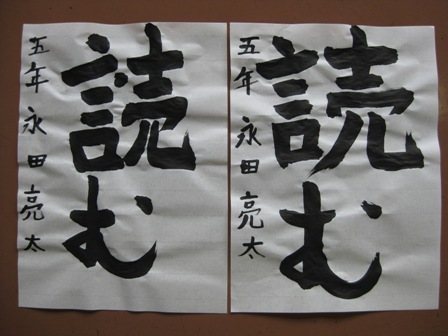 読む
五年 永田亮太
読む
五年 永田亮太